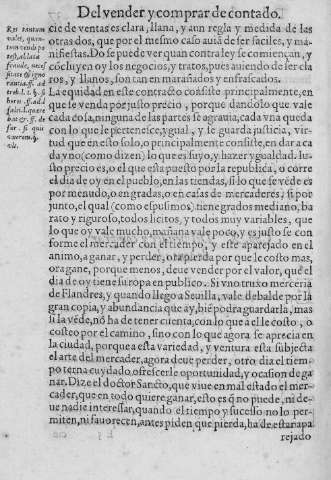 Del vender y comprar de contado.
cie de ventas es clara, llana, y aun regla y medida de las
otras dos, que por el mesmo caso auiã de ser faciles, y ma-
nifiestas. Do se puede ver quan contra ley se comiençan, y
cõcluyen oy los negocios, y tratos, pues auiendo de ser cla
ros, y llanos, son tan en marañados y enfrascados.
La equidad en este contracto cõsiste principalmente, en
que se venda por justo precio, porque dandolo que vale
cada cosa, ninguna de las partes se agrauia, cada vna queda
con lo que le pertenesce, ygual, y se guarda justicia, vir-
tud que en esto solo, o principalmente consiste, en dar a ca
da vno (como dizen) lo que es suyo, y hazer ygualdad. Iu-
sto precio es, o el que esta puesto por la republica, o corre
el dia de oy en el pueblo, en las tiendas, si lo que se vẽde es
por menudo, o en gradas, o en casas de mercaderes, si por
junto, el qual (como espusimos) tiene grados mediano, ba
rato y riguroso, todos licitos, y todos muy variables, que
lo que oy vale mucho, mañana vale poco, y es justo se con
forme el mercader con el tiempo, y este aparejado en el
animo, a ganar, y perder, ora pierda por que le costo mas,
ora gane, porque menos, deue vender por el valor, que el
dia de oy tiene su ropa en publico. Si vno truxo merceria
de Flandres, y quando llego a Seuilla, vale de balde por la
gran copia, y abundancia que ay, biẽ podra guardarla, mas
si la vẽde, nõ ha de tener cuenta, con lo que a el le costo, o
costeo por el camino, sino con lo que agora se aprecia en
la ciudad, porque a esta variedad, y ventura esta subjecta
el arte del mercader, agora deue perder, otro dia el tiem-
po terna cuydado, ofrescerle oportunidad, y ocasion de ga
nar. Dize el doctor Sancto, que viue en mal estado el mer-
cader, que en todo quiere ganar, esto es q̃ no puede, ni de-
ue nadie interessar, quando el tiempo y sucesso no lo per-
miten, ni fauorecen, antes piden que pierda, ha de estar apa
rejado